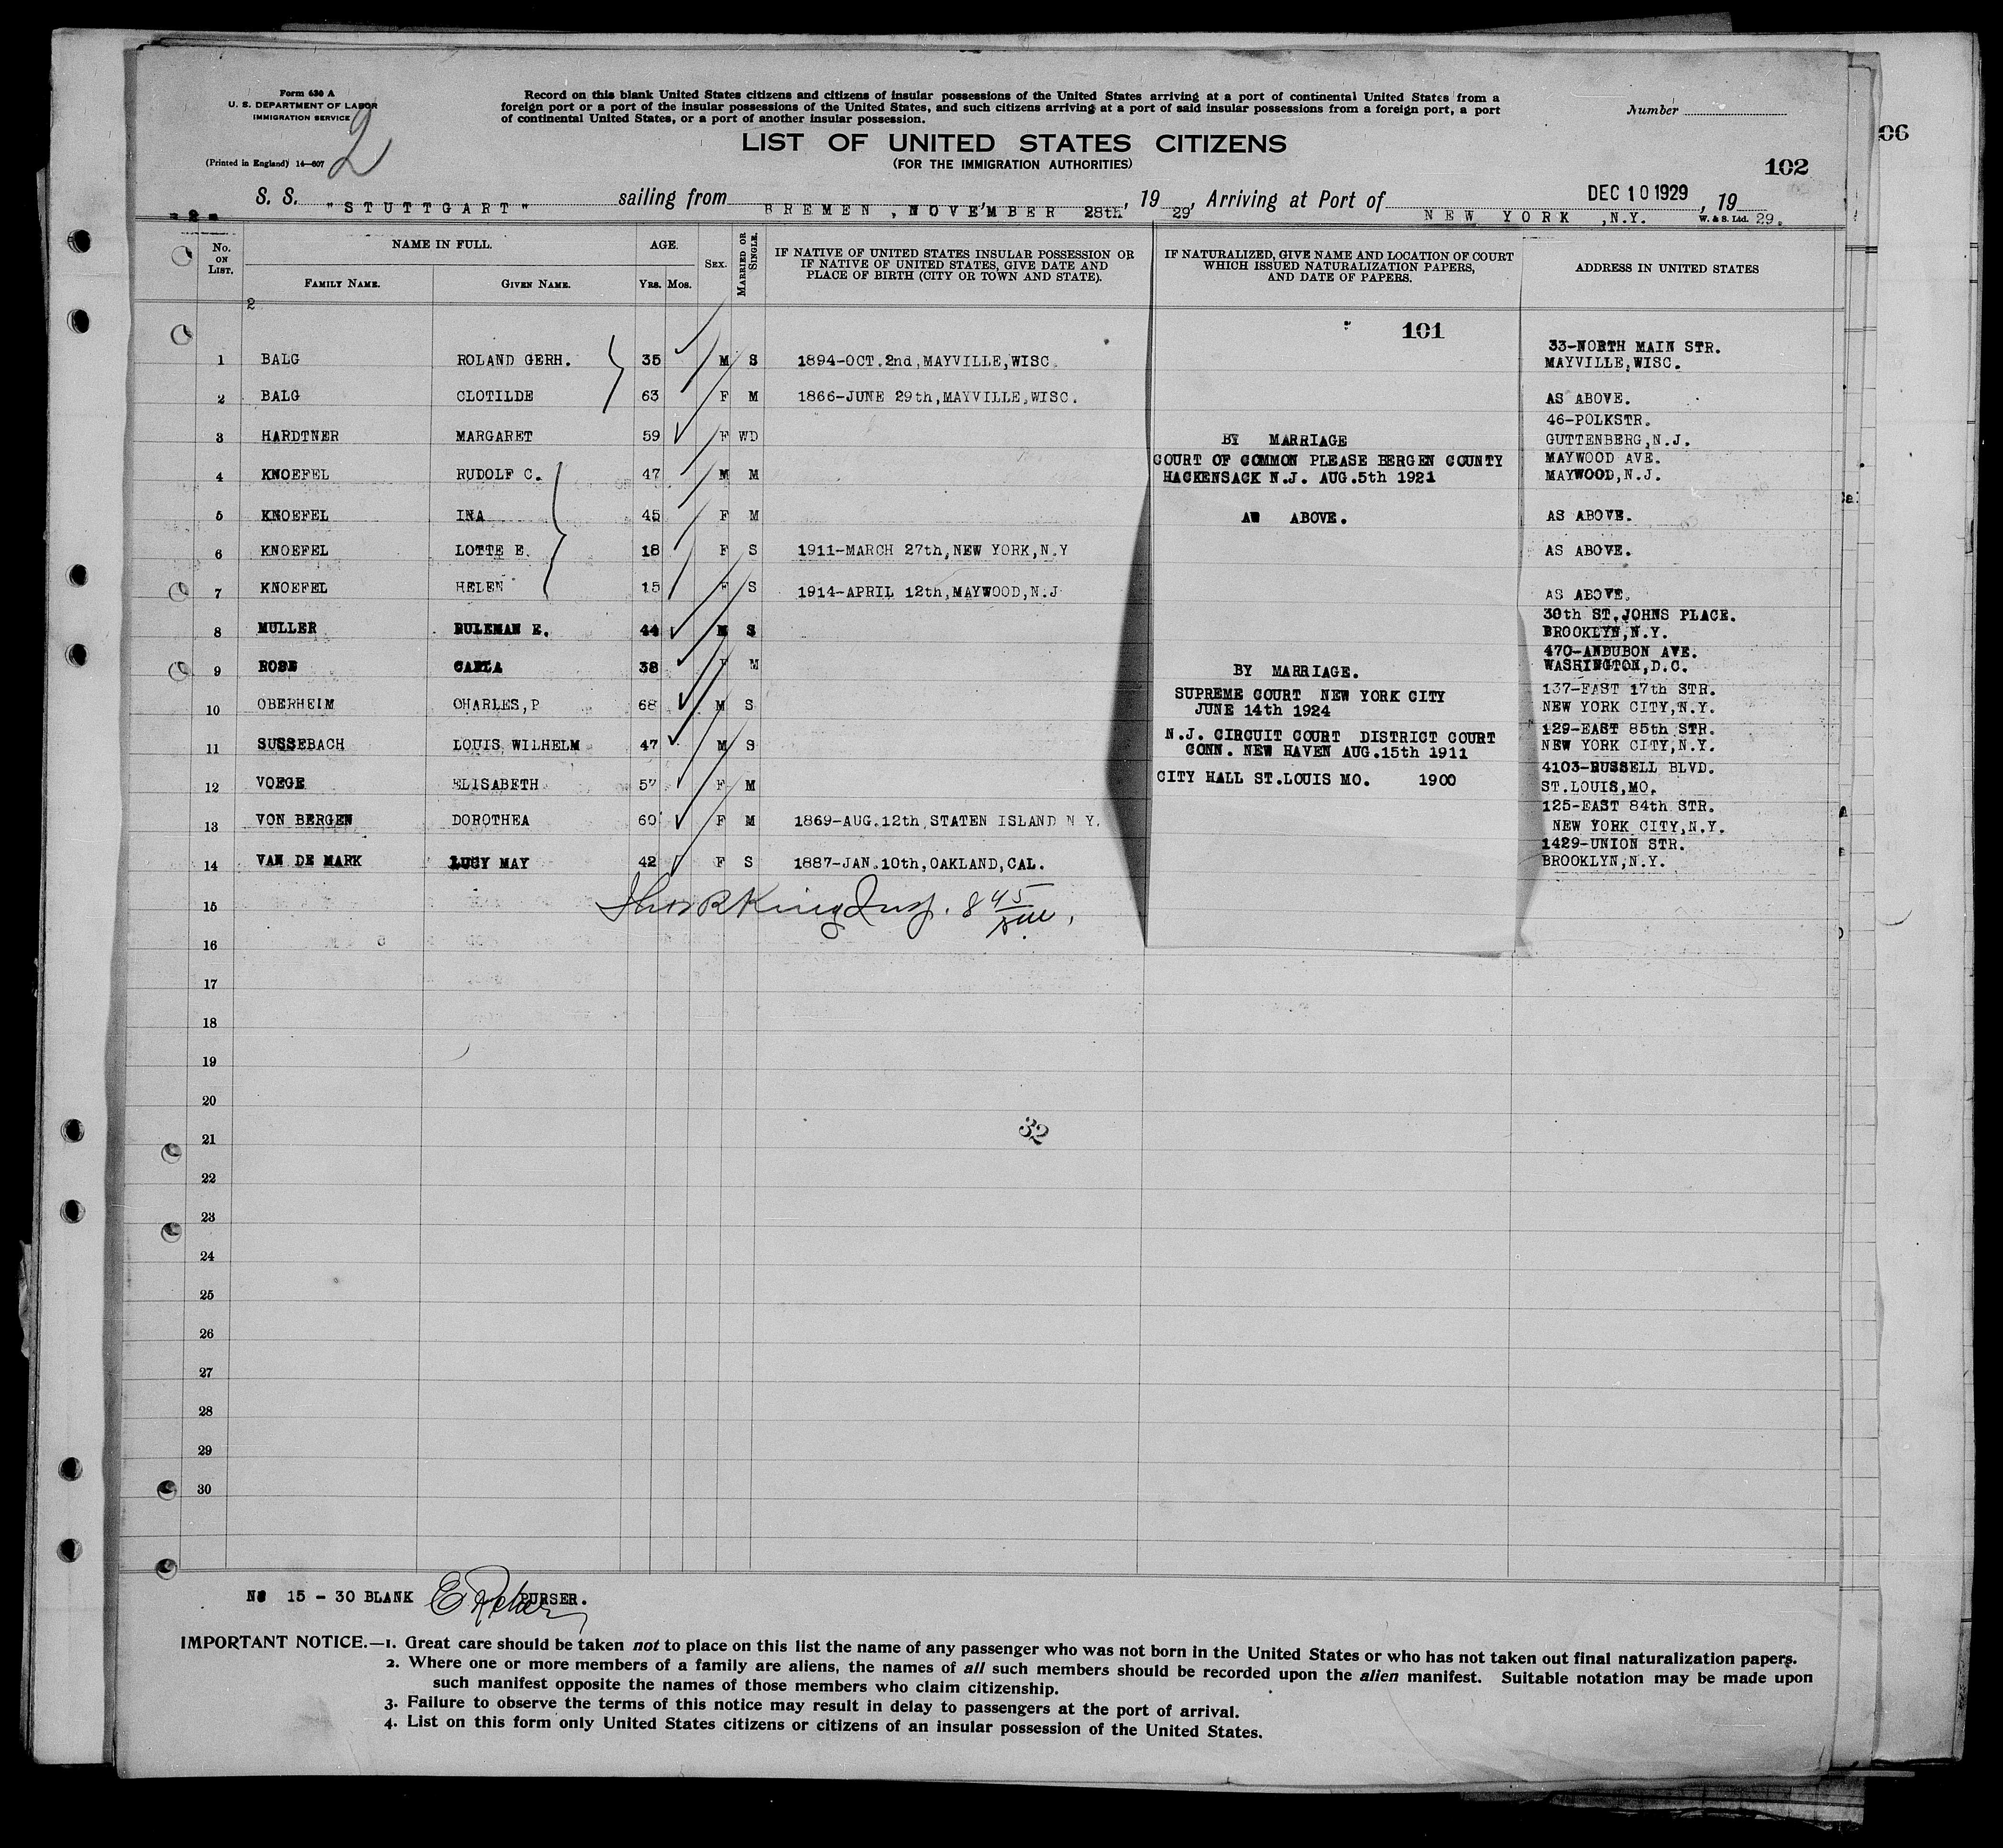 Form 630 A
U. S. DEPARTMENT OF LABOR
IMMIGRATION SERVICE
2
(Printed in England) 14—607
Record on this blank United States citizens and citizens of insular possessions of the United States arriving at a port of continental United States from a
foreign port or a port of the insular possessions of the United States, and such citizens arriving at a port of said insular possessions from a foreign port, a port
of continental United States, or a port of another insular possession.
Number
06
LIST OF UNITED STATES CITIZENS
(FOR THE IMMIGRATION AUTHORITIES)
102
S. S. "STUTTGART" sailing from BREMEN, NOVEMBER 28th, 19 29, Arriving at Port of NEW YORK, N.Y. DEC 10 1929, 19 29.
- 2 -
W. & S. Ltd.
No. ON LIST.
NAME IN FULL.
FAMILY NAME.
GIVEN NAME.
AGE.
YRS. MOS.
SEX.
MARRIED OR SINGLE.
IF NATIVE OF UNITED STATES INSULAR POSSESSION OR
IF NATIVE OF UNITED STATES, GIVE DATE AND
PLACE OF BIRTH (CITY OR TOWN AND STATE).
IF NATURALIZED, GIVE NAME AND LOCATION OF COURT
WHICH ISSUED NATURALIZATION PAPERS,
AND DATE OF PAPERS.
ADDRESS IN UNITED STATES
2
101
1 BALG ROLAND GERH. 35 M S 1894-OCT.2nd,MAYVILLE,WISC. 33-NORTH MAIN STR.
MAYVILLE,WISC.
2 BALG CLOTILDE 63 F M 1866-JUNE 29th,MAYVILLE,WISC. AS ABOVE.
3 HARDTNER MARGARET 59 F WD BY MARRIAGE 46-POLKSTR.
GUTTENBERG,N.J.
4 KNOEFEL RUDOLF C. 47 M M COURT OF COMMON PLEASE BERGEN COUNTY
HACKENSACK N.J. AUG.5th 1921 MAYWOOD AVE.
MAYWOOD,N.J.
5 KNOEFEL INA 45 F M AW ABOVE. AS ABOVE.
6 KNOEFEL LOTTE E. 18 F S 1911-MARCH 27th,NEW YORK,N.Y AS ABOVE.
7 KNOEFEL HELEN 15 F S 1914-APRIL 12th,MAYWOOD,N.J AS ABOVE.
8 MULLER RULEMAN E. 44 M S 30th ST.JOHNS PLACE.
BROOKLYN,N.Y.
9 ROSE CARLA 38 F M BY MARRIAGE. 470-ANDUBON AVE.
WASHINGTON,D.C.
10 OBERHEIM CHARLES,P 68 M S SUPREME COURT NEW YORK CITY
JUNE 14th 1924 137-EAST 17th STR.
NEW YORK CITY,N.Y.
11 SUSSEBACH LOUIS WILHELM 47 M S N.J. CIRCUIT COURT DISTRICT COURT
CONN. NEW HAVEN AUG.15th 1911 129-EAST 85th STR.
NEW YORK CITY,N.Y.
12 VOEGE ELISABETH 57 F M CITY HALL ST.LOUIS MO. 1900 4103-RUSSELL BLVD.
ST.LOUIS,MO.
13 VON BERGEN DOROTHEA 60 F M 1869-AUG.12th STATEN ISLAND N Y. 125-EAST 84th STR.
NEW YORK CITY,N.Y.
14 VAN DE MARK LUCY MAY 42 F S 1887-JAN.10th,OAKLAND,CAL. 1429-UNION STR.
BROOKLYN,N.Y.
15 Thos R King Insp. 8 45
16
17
18
19
20
32
21
22
23
24
25
26
27
28
29
30
No 15 - 30 BLANK PURSER.
IMPORTANT NOTICE.—1. Great care should be taken not to place on this list the name of any passenger who was not born in the United States or who has not taken out final naturalization papers.
2. Where one or more members of a family are aliens, the names of all such members should be recorded upon the alien manifest. Suitable notation may be made upon
such manifest opposite the names of those members who claim citizenship.
3. Failure to observe the terms of this notice may result in delay to passengers at the port of arrival.
4. List on this form only United States citizens or citizens of an insular possession of the United States.